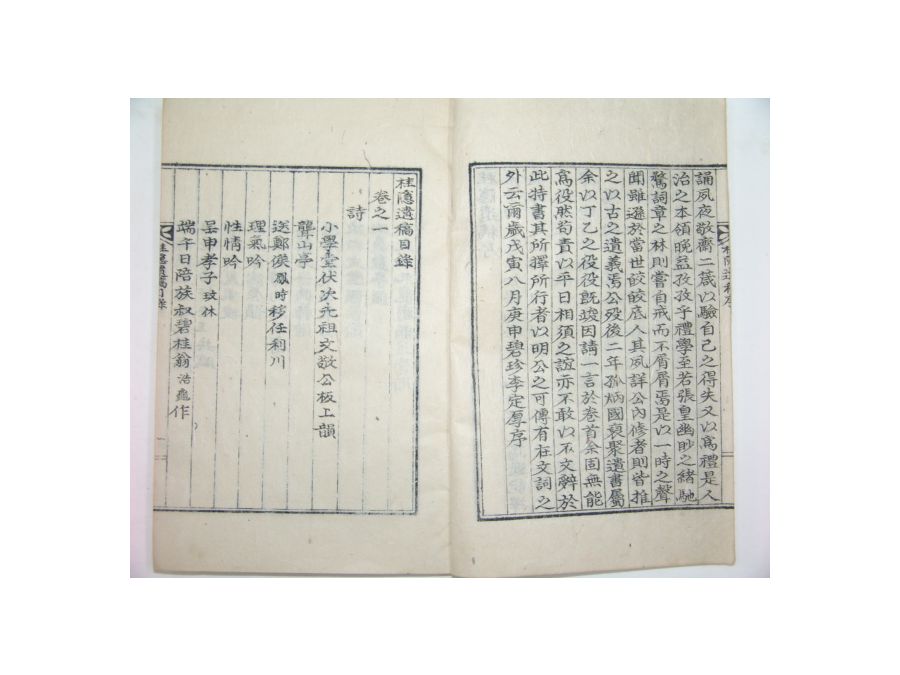 誦夙夜敬齋二箴以驗自己之得失又以爲禮是人
治之本領晚益孜孜乎禮學至若張皇幽眇之緖馳
騖詞章之林則嘗自戒而不屑屑焉是以一時之聲
聞雖遜於當世皎皎底人其夙詳公內修者則皆推
之以古之遺義焉公歿後二年孤炳國裒聚遺書屬
余以丁乙之役役旣竣因請一言於卷首余固無能
爲役然苟責以平日相須之誼亦不敢以不文辭於
此特書其所擇所行者以明公之可傳有在文詞之
外云爾歲戊寅八月庚申碧珍李定厚序
桂隱遺稿序
桂隱遺稿目錄
卷之一
詩
小學堂伏次先祖文敬公板上韻
聾山亭
送鄭侯鳳時移任利川
理氣吟
性情吟
呈申孝子玟休
端午日陪族叔碧桂翁浩龜作
桂隱遺稿目錄